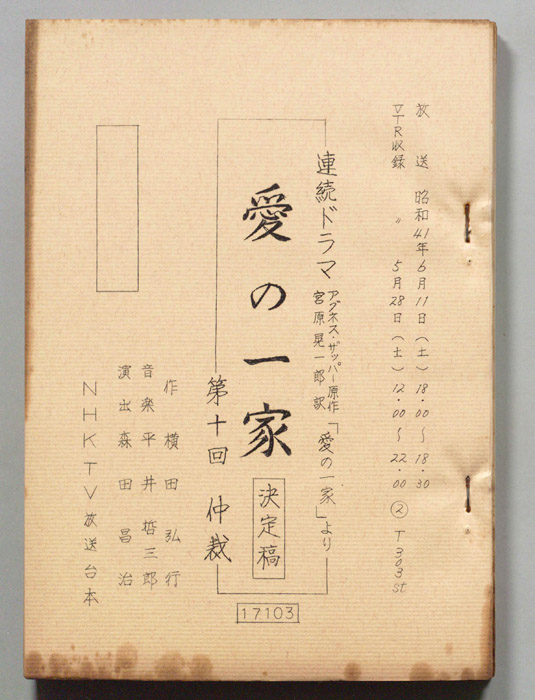 放送 昭和41年6月11日(土)18.00〜18.30
VTR収録 〃 5月28日(土)12.00〜22.00 ② T303st
連続ドラマ アグネス・ザッパー原作
宮原晃一郎訳「愛の一家」より
愛の一家
決定稿
第十回 仲裁
17103
作 横田弘行
音楽 平井哲三郎
演出 森田昌治
NHKTV放送台本